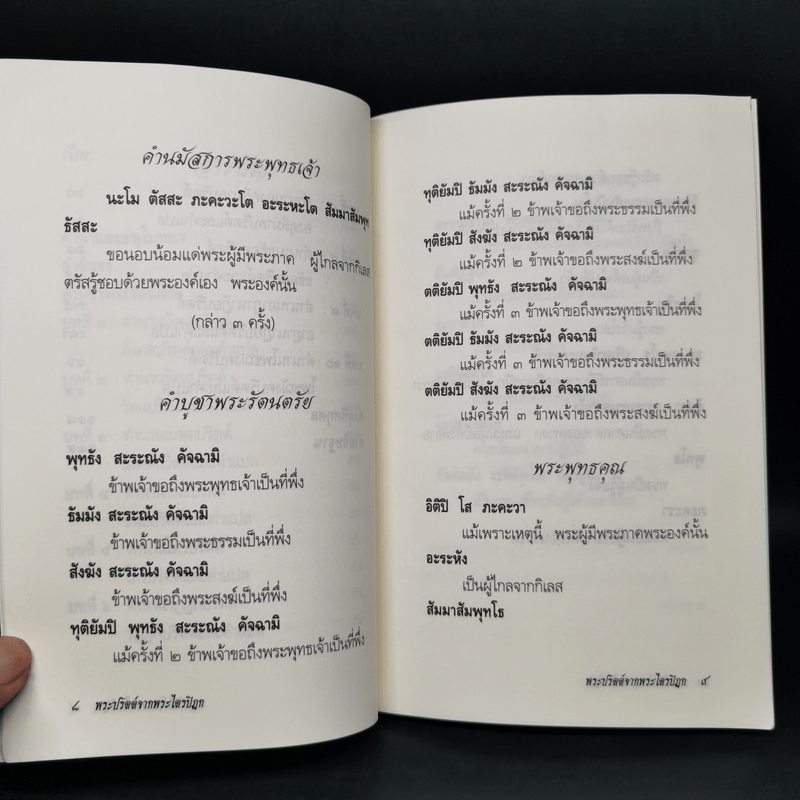 คำนมัสการพระพุทธเจ้า
นะโม ตัสสะ ภะคะวะโต อะระหะโต สัมมาสัมพุท
ธัสสะ
ขอนอบน้อมแด่พระผู้มีพระภาค ผู้ไกลจากกิเลส
ตรัสรู้ชอบด้วยพระองค์เอง พระองค์นั้น
(กล่าว ๓ ครั้ง)
คำบูชาพระรัตนตรัย
พุทธัง สะระณัง คัจฉามิ
ข้าพเจ้าขอถึงพระพุทธเจ้าเป็นที่พึ่ง
ธัมมัง สะระณัง คัจฉามิ
ข้าพเจ้าขอถึงพระธรรมเป็นที่พึ่ง
สังฆัง สะระณัง คัจฉามิ
ข้าพเจ้าขอถึงพระสงฆ์เป็นที่พึ่ง
ทุติยัมปิ พุทธัง สะระณัง คัจฉามิ
แม้ครั้งที่ ๒ ข้าพเจ้าขอถึงพระพุทธเจ้าเป็นที่พึ่ง
๘ พระปริตต์จากพระไตรปิฎก
ทุติยัมปิ ธัมมัง สะระณัง คัจฉามิ
แม้ครั้งที่ ๒ ข้าพเจ้าขอถึงพระธรรมเป็นที่พึ่ง
ทุติยัมปิ สังฆัง สะระณัง คัจฉามิ
แม้ครั้งที่ ๒ ข้าพเจ้าขอถึงพระสงฆ์เป็นที่พึ่ง
ตติยัมปิ พุทธัง สะระณัง คัจฉามิ
แม้ครั้งที่ ๓ ข้าพเจ้าขอถึงพระพุทธเจ้าเป็นที่พึ่ง
ตติยัมปิ ธัมมัง สะระณัง คัจฉามิ
แม้ครั้งที่ ๓ ข้าพเจ้าขอถึงพระธรรมเป็นที่พึ่ง
ตติยัมปิ สังฆัง สะระณัง คัจฉามิ
แม้ครั้งที่ ๓ ข้าพเจ้าขอถึงพระสงฆ์เป็นที่พึ่ง
พระพุทธคุณ
อิติปิ โส ภะคะวา
แม้เพราะเหตุนี้ พระผู้มีพระภาคพระองค์นั้น
อะระหัง
เป็นผู้ไกลจากกิเลส
สัมมาสัมพุทโธ
พระปริตต์จากพระไตรปิฎก ๙